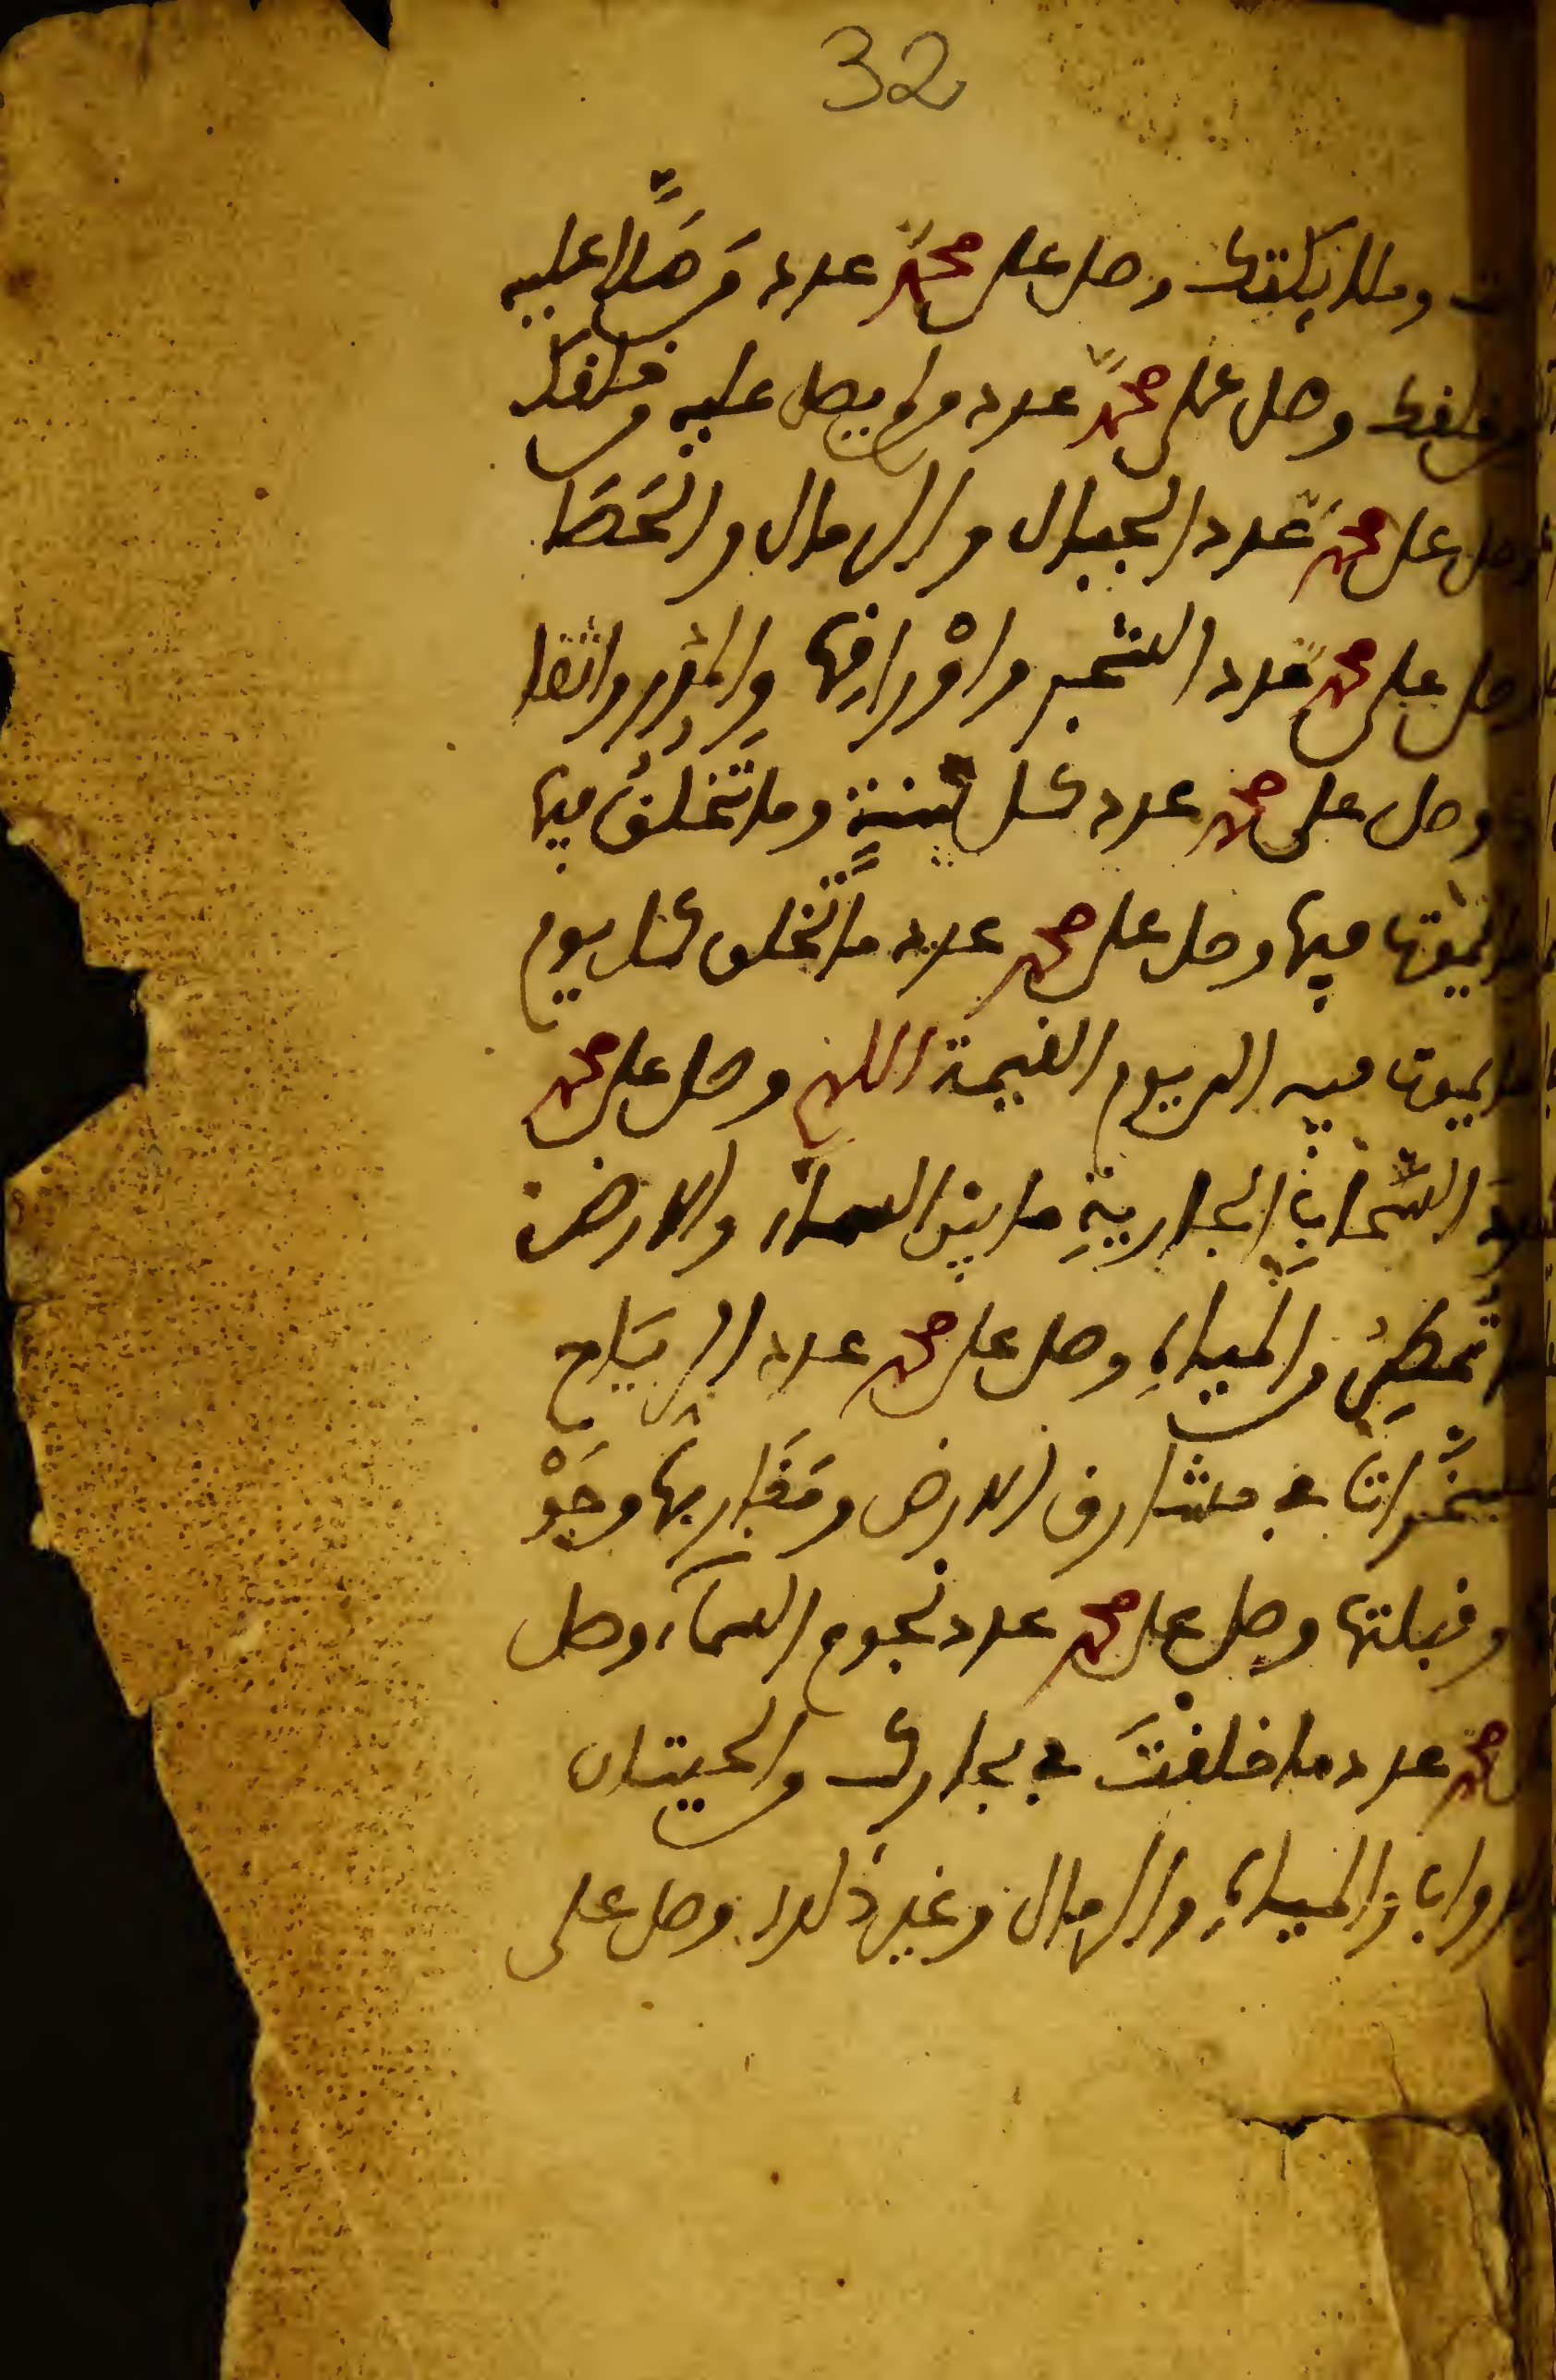 32
وملايكتك وصل على محمد عدد من صلا عليه
من خلقك وصل على محمد عدد من لم يصل عليه من خلقك
وصل على محمد عدد الجبال والرمال والحصا
وصل على محمد عدد الشجر واوراقها والمدر واثقا
وصل على محمد عدد كل سنة وما تخلق فيها
يموت فيها وصل على محمد عدد ما تخلق كل يوم
يموت فيه الى يوم القيمة اللهم وصل على محمد
السحاب الجارية ما بين السماء والارض
تمطر من المياه وصل على محمد عدد الرياح
المسخرات في مشارق الارض ومغاربها وجو
وقبلتها وصل على محمد عدد نجوم السماء وصل
محمد عدد ما خلقت في بحارك من الحيتان
والمياه والرمال وغير ذلك وصل على